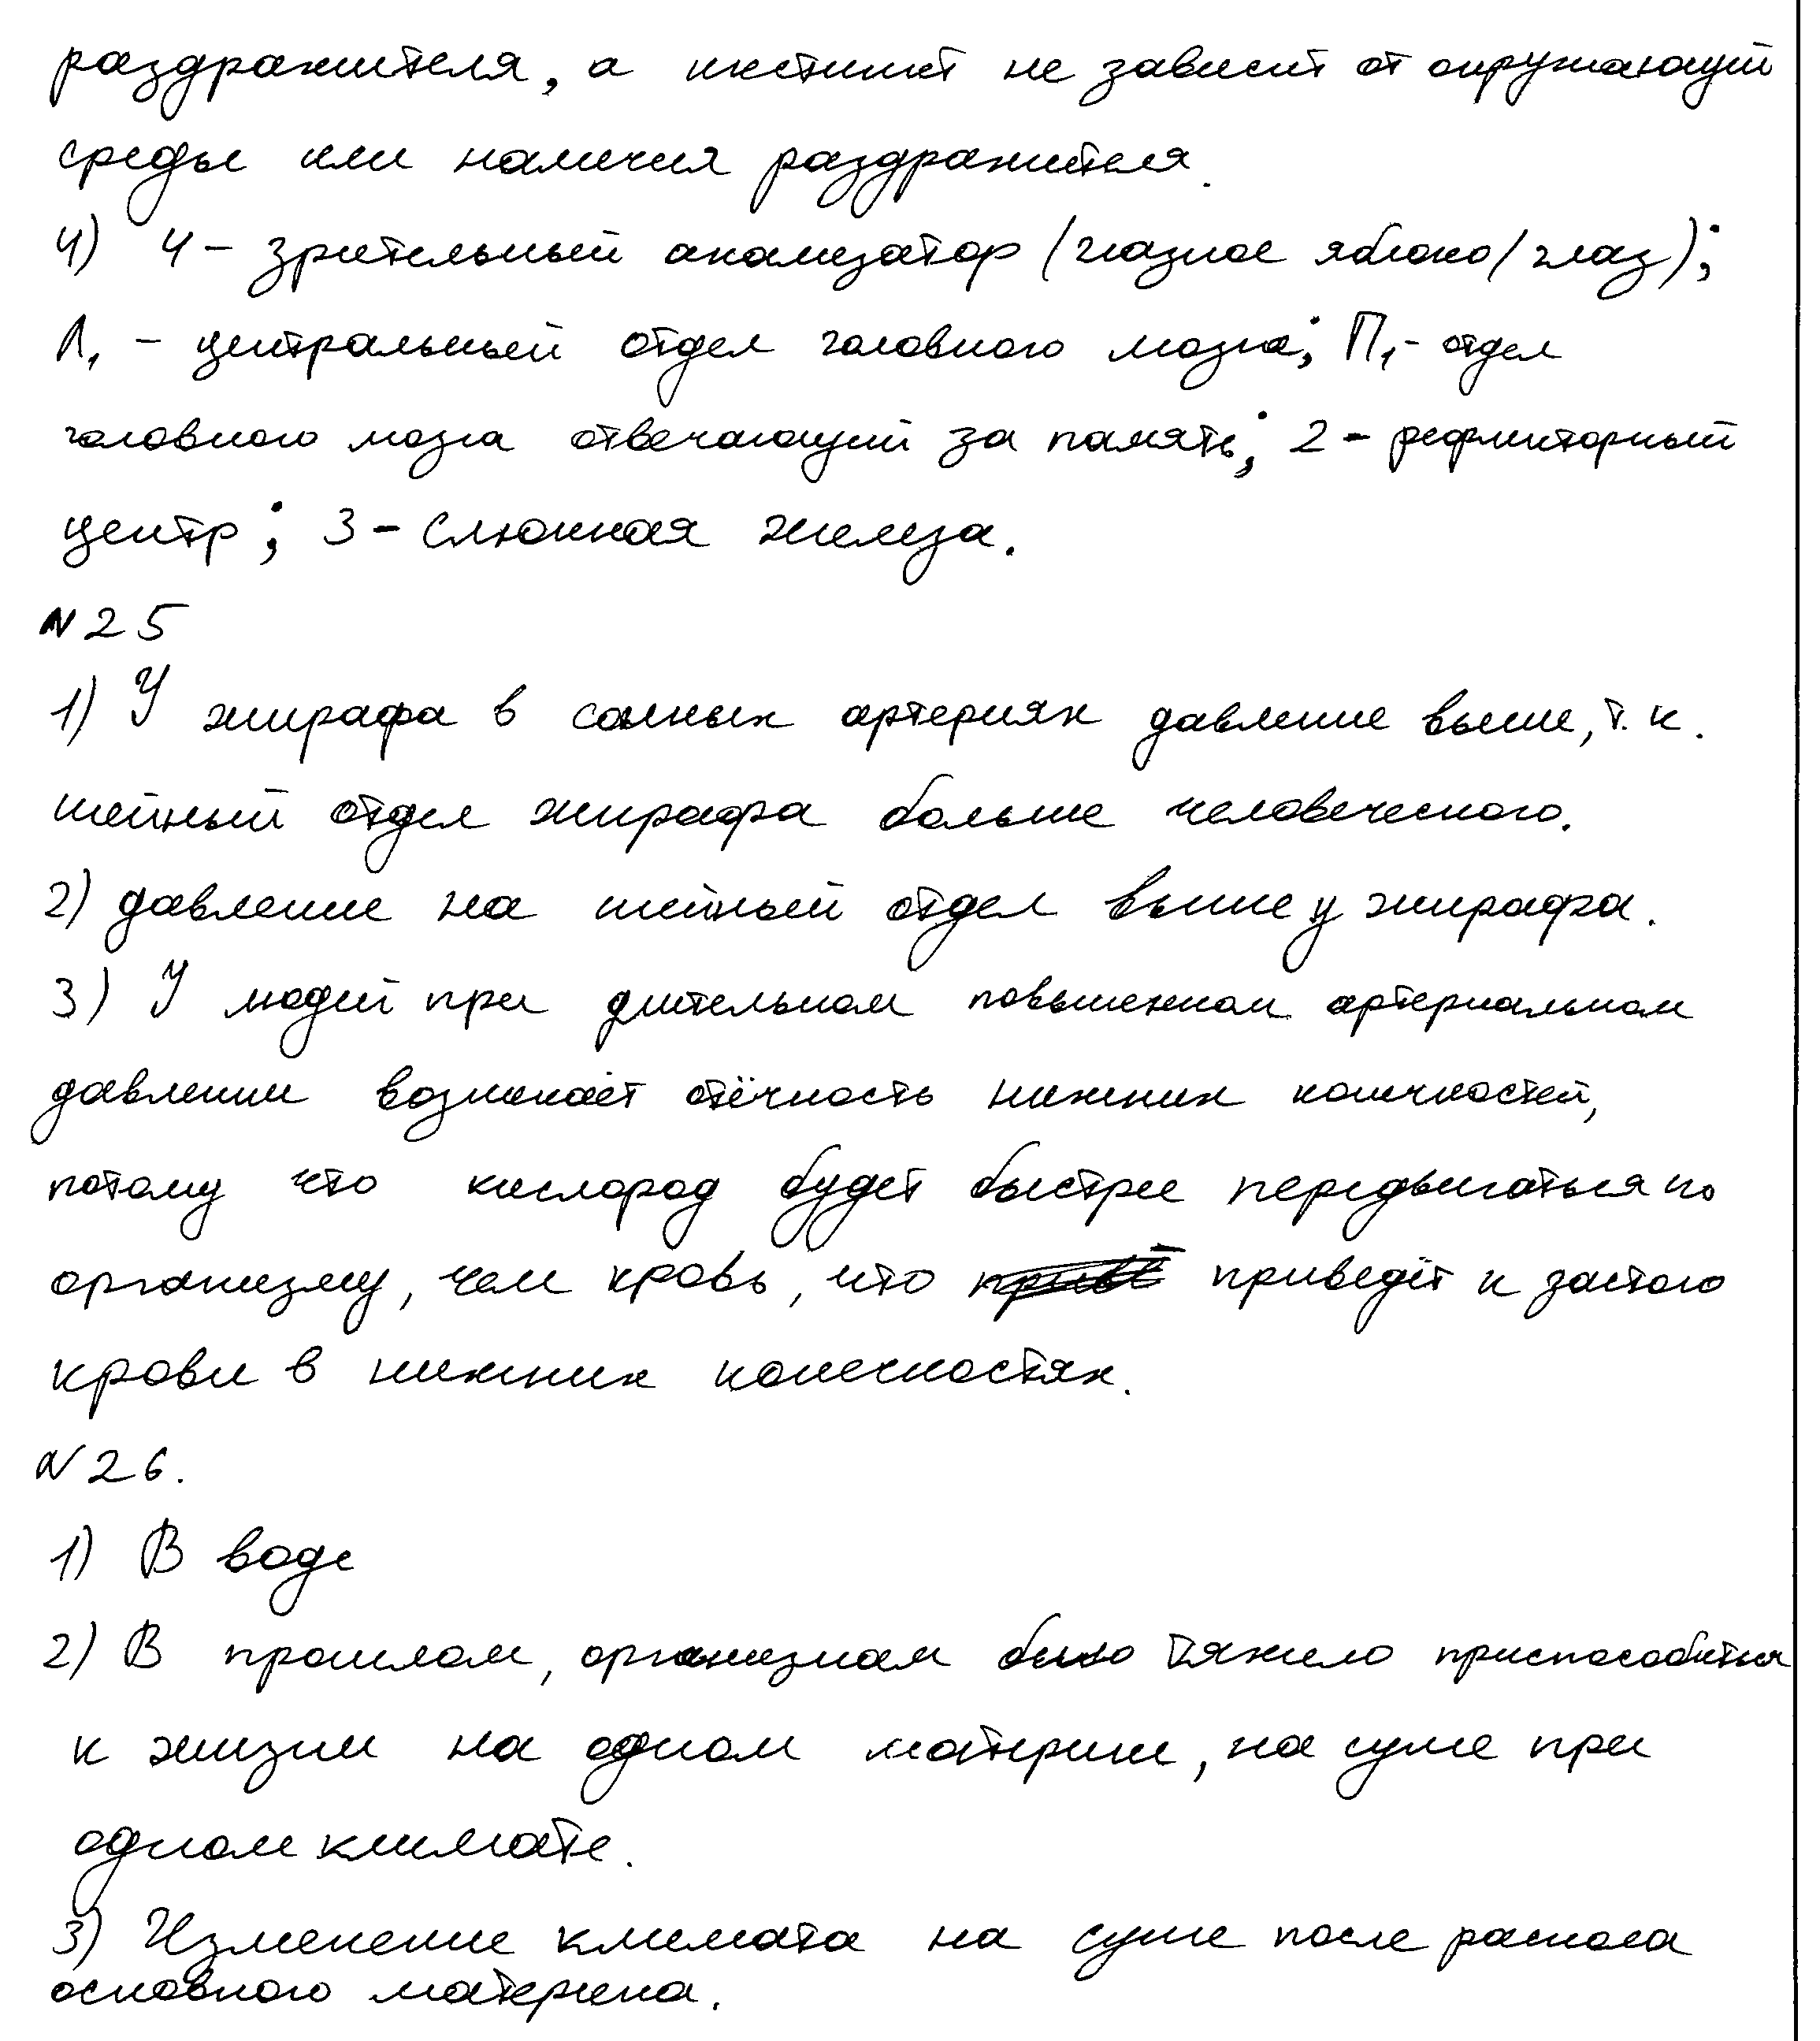 раздражителя, а инстинкт не зависит от окружающей
среды или наличия раздражителя.
4) 4 - зрительный анализатор (глазное яблоко/глаз);
Л₁ - центральный отдел головного мозга; П₁ - отдел
головного мозга отвечающий за память; 2 - рефлекторный
центр; 3 - слюнная железа.
N25
1) У жирафа в сонных артериях давление выше, т.к.
шейный отдел жирафа больше человеческого.
2) давление на шейный отдел выше у жирафа.
3) У людей при длительном повышенном артериальном
давлении возникает отёчность нижних конечностей,
потому что кислород будет быстрее передвигаться по
организму, чем кровь, что приведёт к застою
крови в нижних конечностях.
N26.
1) В воде
2) В прошлом, организмам было тяжело приспособиться
к жизни на одном материке, на суше при
одном климате.
3) Изменение климата на суше после раскола
основного материка.